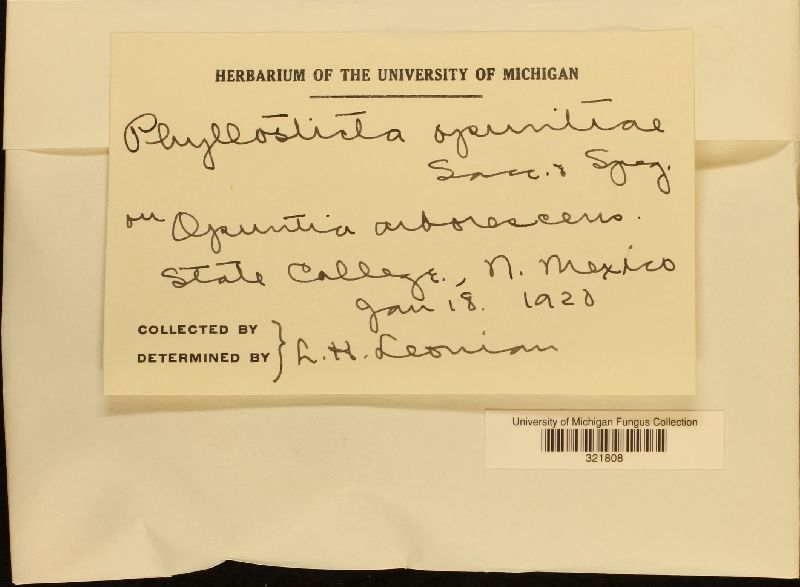 HERBARIUM OF THE UNIVERSITY OF MICHIGAN
Phyllosticta opuntiae
Sacc. & Speg.
on Opuntia arborescens.
State College., N. Mexico
Jan 18. 1920
COLLECTED BY
DETERMINED BY } L. H. Leonian
University of Michigan Fungus Collection
321808